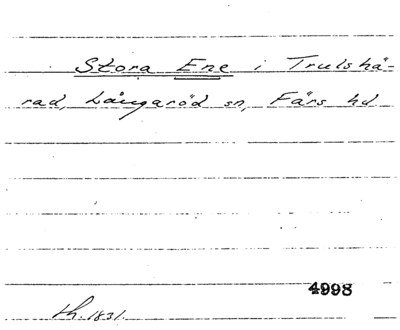 Stora Ene i Trulshä-
rad, Långaröd sn, Färs hd
4998
th. 1831.